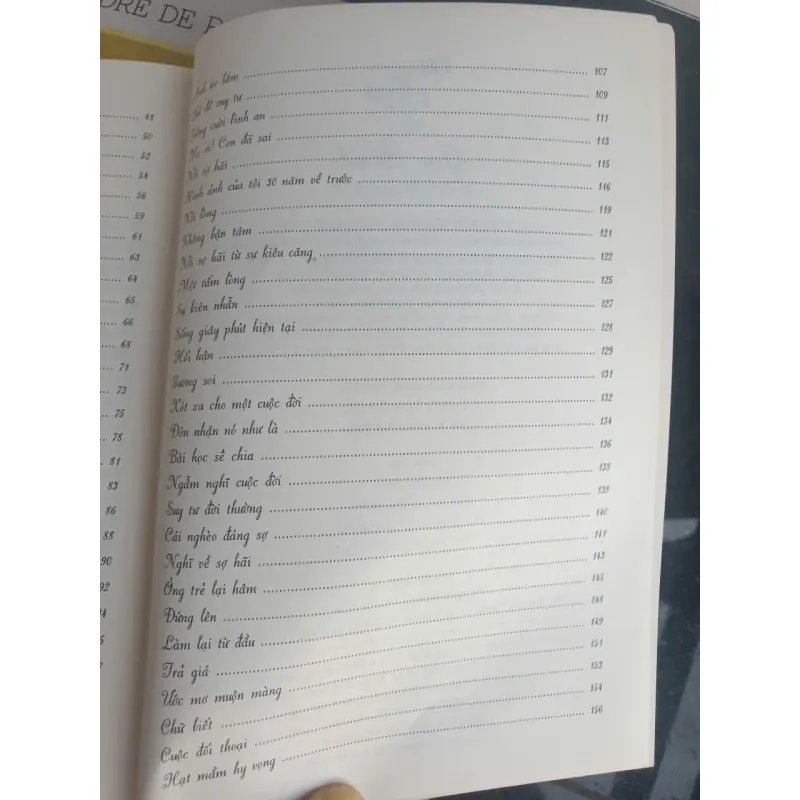 DRE DE
48
50
52
54
56
59
61
63
64
65
66
68
71
73
75
78
81
83
86
88
90
92
hâm ........ 107
suy tư ........ 109
cười bình an ........ 111
Mẹ ơi! Con đã sai ........ 113
Nỗi sợ hãi ........ 115
Hình ảnh của tôi 30 năm về trước ........ 116
Nỗi lòng ........ 119
Không bận tâm ........ 121
Nỗi sợ hãi từ sự kiêu căng ........ 122
Một tấm lòng ........ 125
Sự kiên nhẫn ........ 127
Sống giây phút hiện tại ........ 128
Hối hận ........ 129
Gương soi ........ 131
Xót xa cho một cuộc đời ........ 132
Đón nhận nó như là ........ 134
Bài học sẻ chia ........ 136
Ngẫm nghĩ cuộc đời ........ 138
Suy tư đời thường ........ 139
Cái nghèo đáng sợ ........ 140
Nghĩ về sợ hãi ........ 141
Ông trẻ lại hâm ........ 143
Đứng lên ........ 145
Làm lại từ đầu ........ 148
Trả giá ........ 149
Ước mơ muộn màng ........ 151
Chữ biết ........ 153
Cuộc đối thoại ........ 154
Hạt mầm hy vọng ........ 156